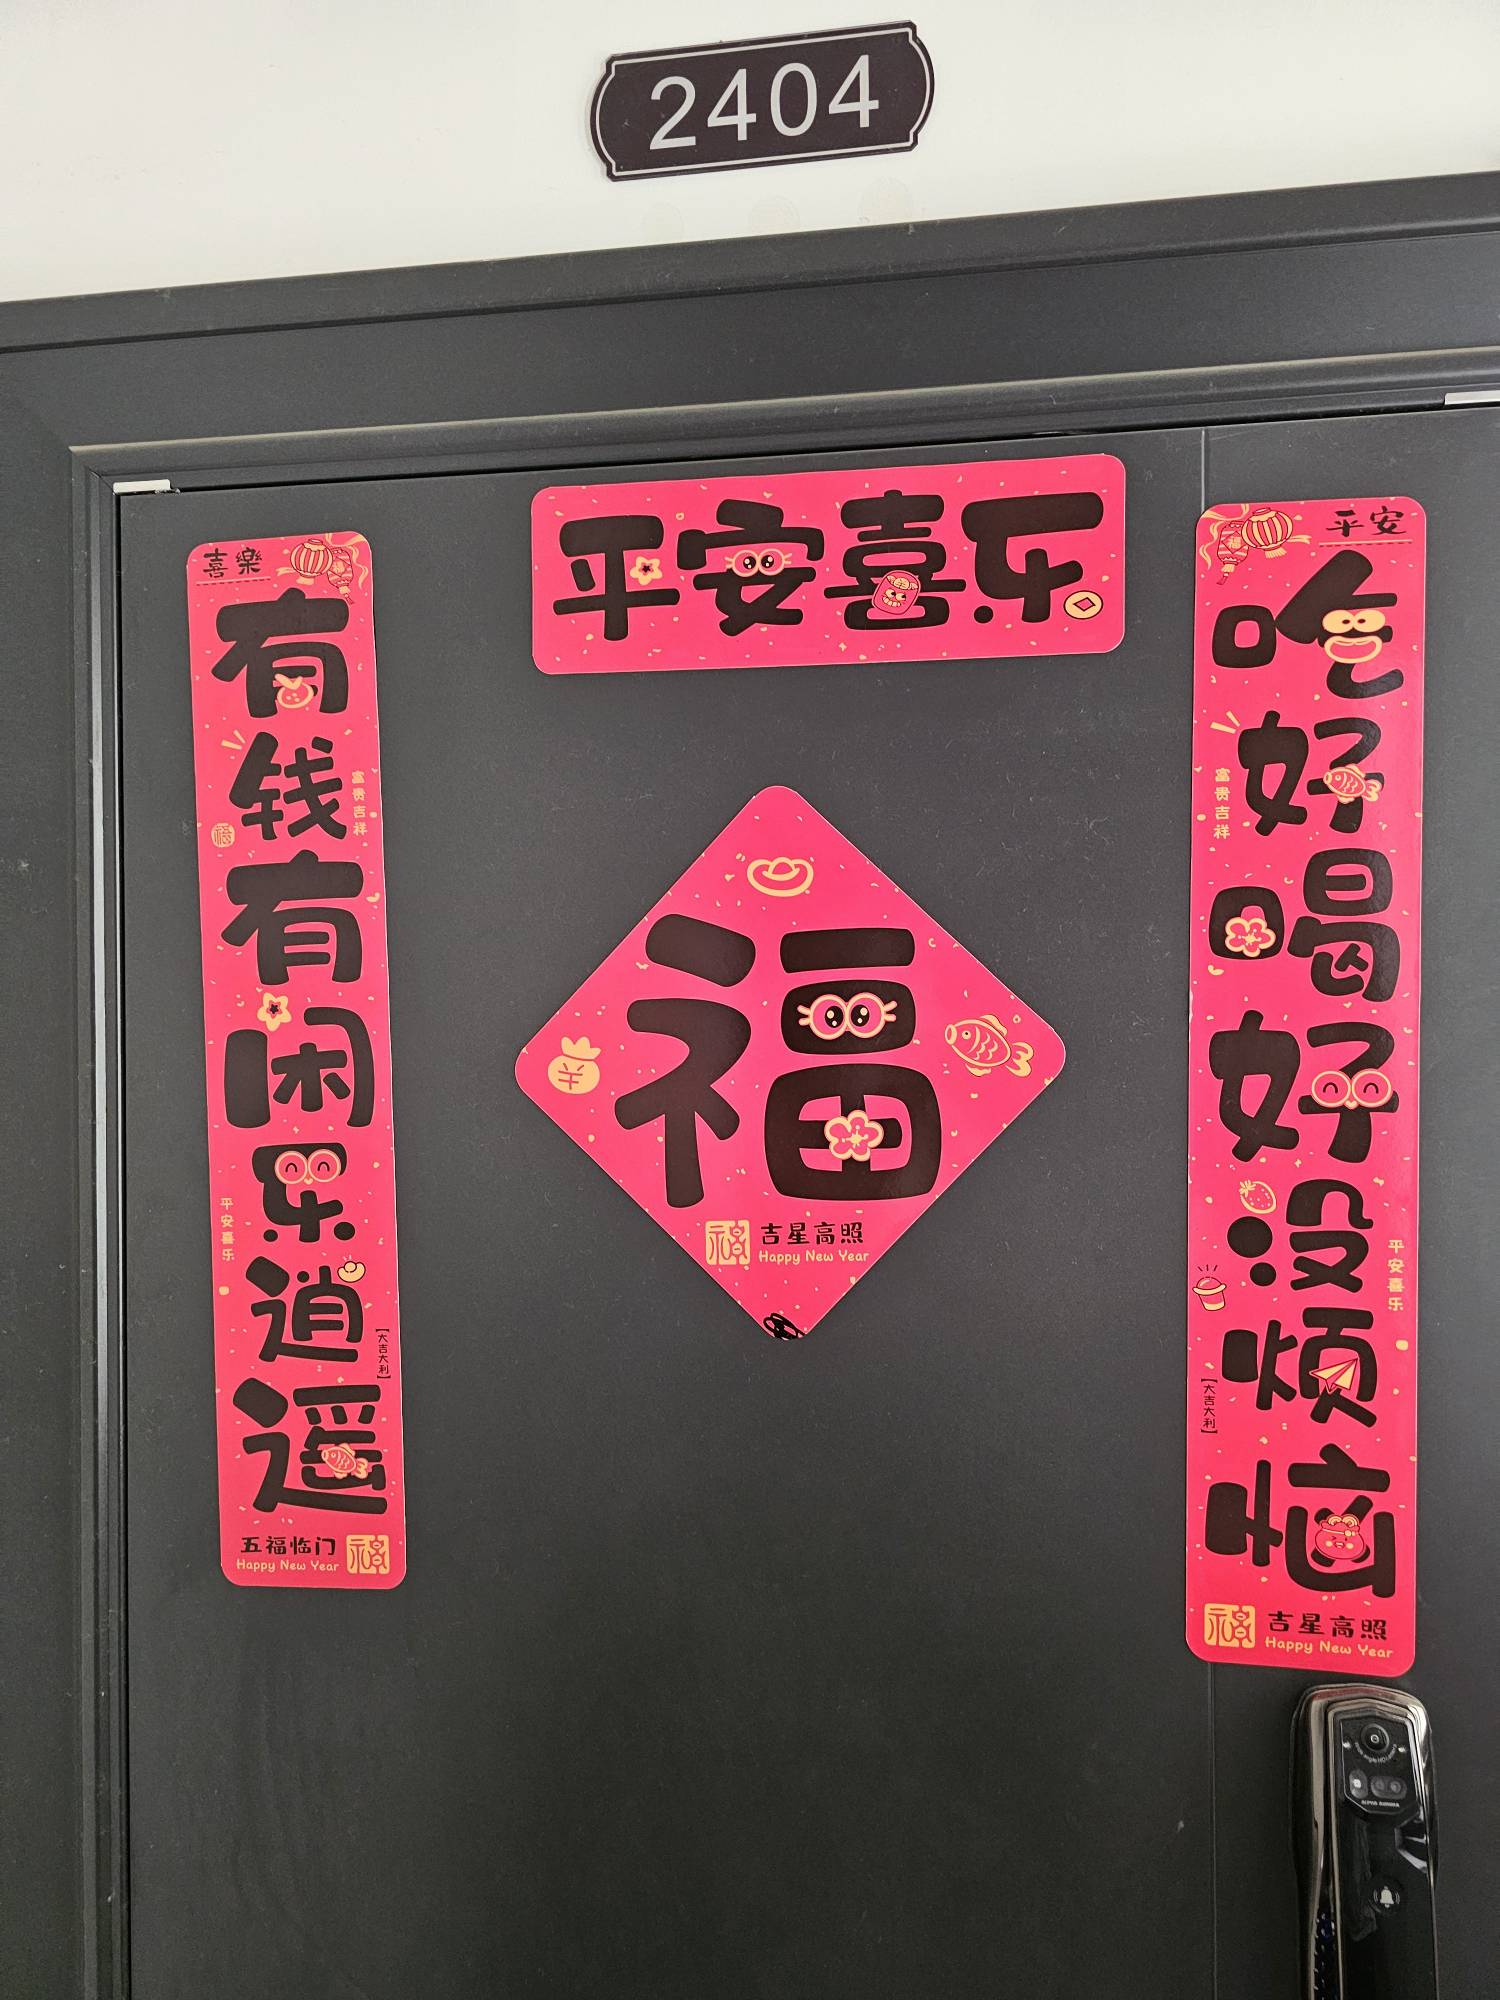 2404
平安喜乐
平安
吃好喝好没烦恼
富贵吉祥
平安喜乐
【大吉大利】
福 吉星高照
Happy New Year
喜樂
有钱有闲乐逍遥
富贵吉祥
福
平安喜乐
【大吉大利】
五福临门 福
Happy New Year
福
福 吉星高照
Happy New Year